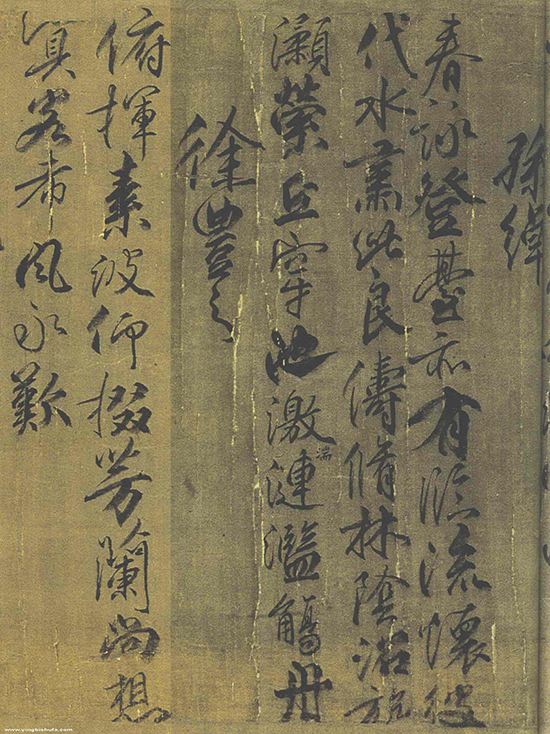 孫綽
春詠登臺亦有臨流懷彼
代水肅此良儔脩林陰沼旋
瀨縈丘穿池激湍漣濫觴舟
徐豐之
俯揮素波仰掇芳蘭尚想
客希風永歎
www.yingbishufa.com